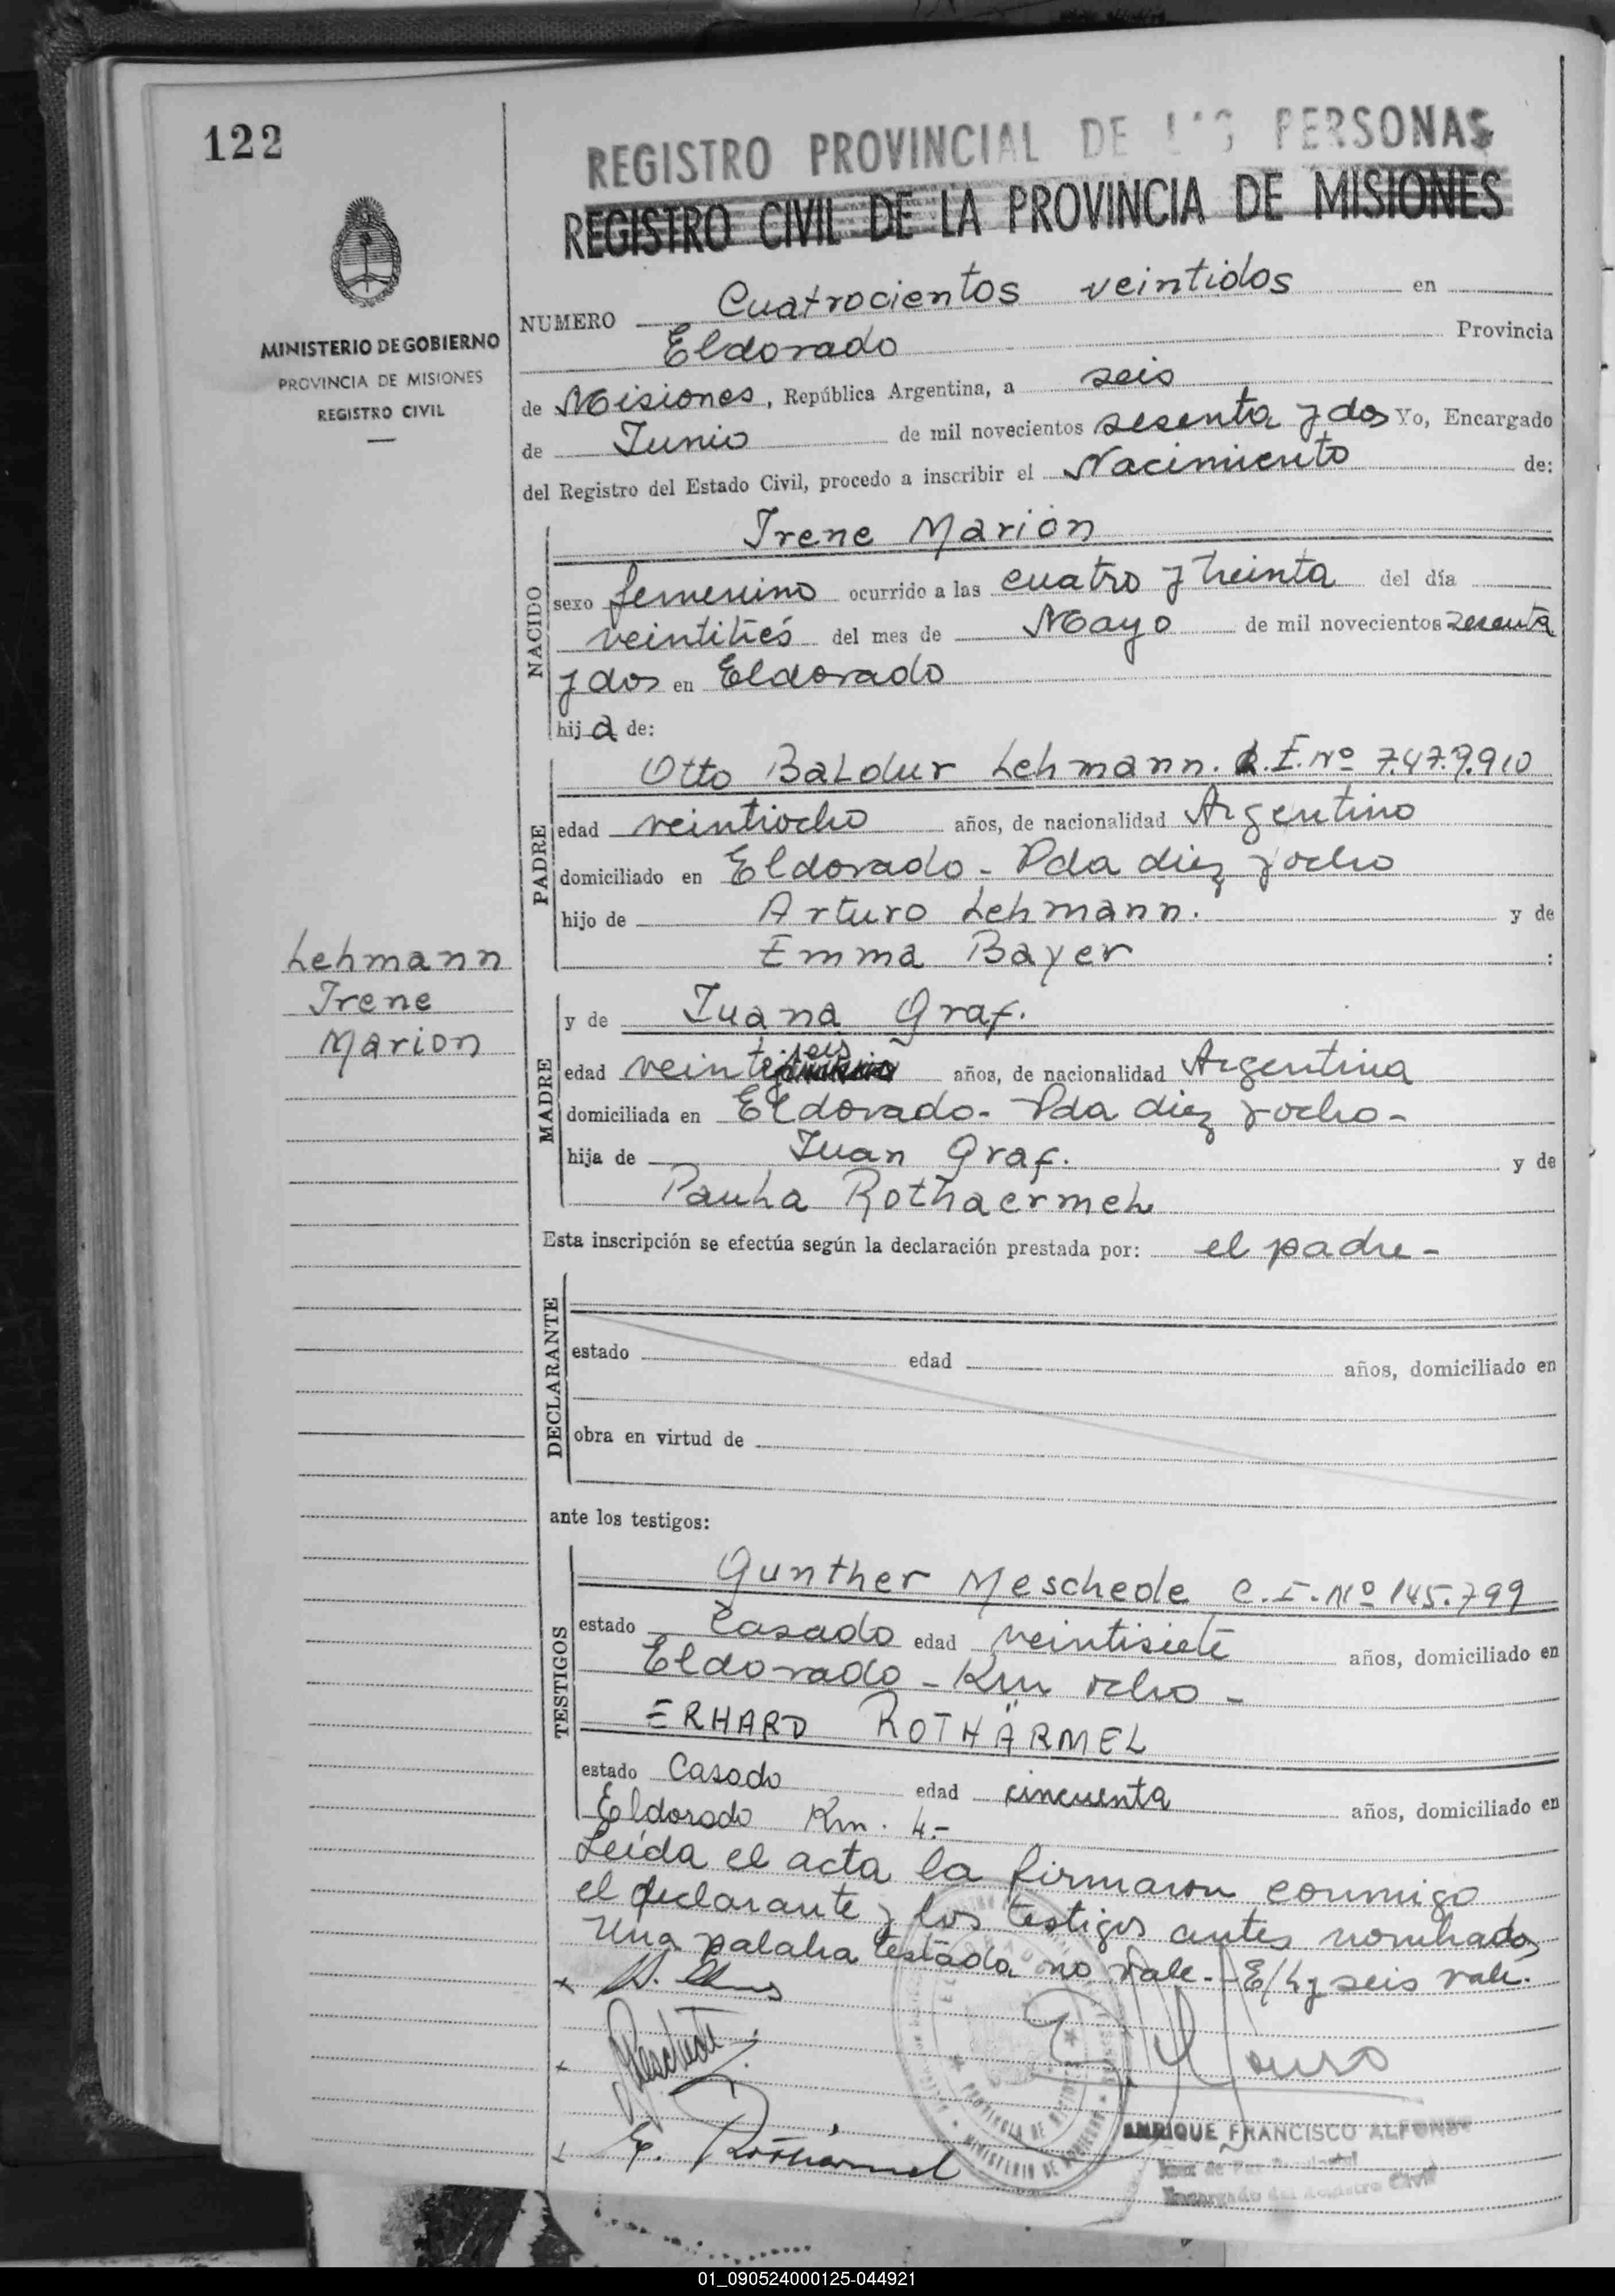 122
REGISTRO PROVINCIAL DE LAS PERSONAS
REGISTRO CIVIL DE LA PROVINCIA DE MISIONES
MINISTERIO DE GOBIERNO
PROVINCIA DE MISIONES
REGISTRO CIVIL
NUMERO Cuatrocientos veintidos en
Eldorado Provincia
de Misiones, República Argentina, a seis
de Junio de mil novecientos sesenta y dos Yo, Encargado
del Registro del Estado Civil, procedo a inscribir el Nacimiento de:
NACIDO
Irene Marion
sexo femenino ocurrido a las cuatro y treinta del día
veintitrés del mes de Mayo de mil novecientos sesenta
y dos en Eldorado
hija de:
PADRE
Otto Baldur Lehmann. L.E. Nº 7.479.910
edad veintiocho años, de nacionalidad Argentino
domiciliado en Eldorado - Pda diez y ocho
hijo de Arturo Lehmann. y de
Emma Bayer :
Lehmann
Irene
Marion
MADRE
y de Juana Graf.
edad veintiseis años, de nacionalidad Argentina
domiciliada en Eldorado - Pda diez y ocho -
hija de Juan Graf. y de
Paula Rothaermel
Esta inscripción se efectúa según la declaración prestada por: el padre -
DECLARANTE
estado edad años, domiciliado en
obra en virtud de
ante los testigos:
TESTIGOS
Gunther Meschede C.I. Nº 145.799
estado Casado edad veintisiete años, domiciliado en
Eldorado - Km ocho -
ERHARD ROTHÄRMEL
estado Casado edad cincuenta años, domiciliado en
Eldorado Km. 4.-
Leída el acta la firmaron conmigo
el declarante y los testigos antes nombrados
Una palabra testada no vale.- E/L y seis vale.
E. Rothärmel
PROVINCIA DE MISIONES
MINISTERIO DE GOBIERNO
ENRIQUE FRANCISCO ALFONSO
Juez de Paz
Encargado del Registro Civil
01_090524000125-044921